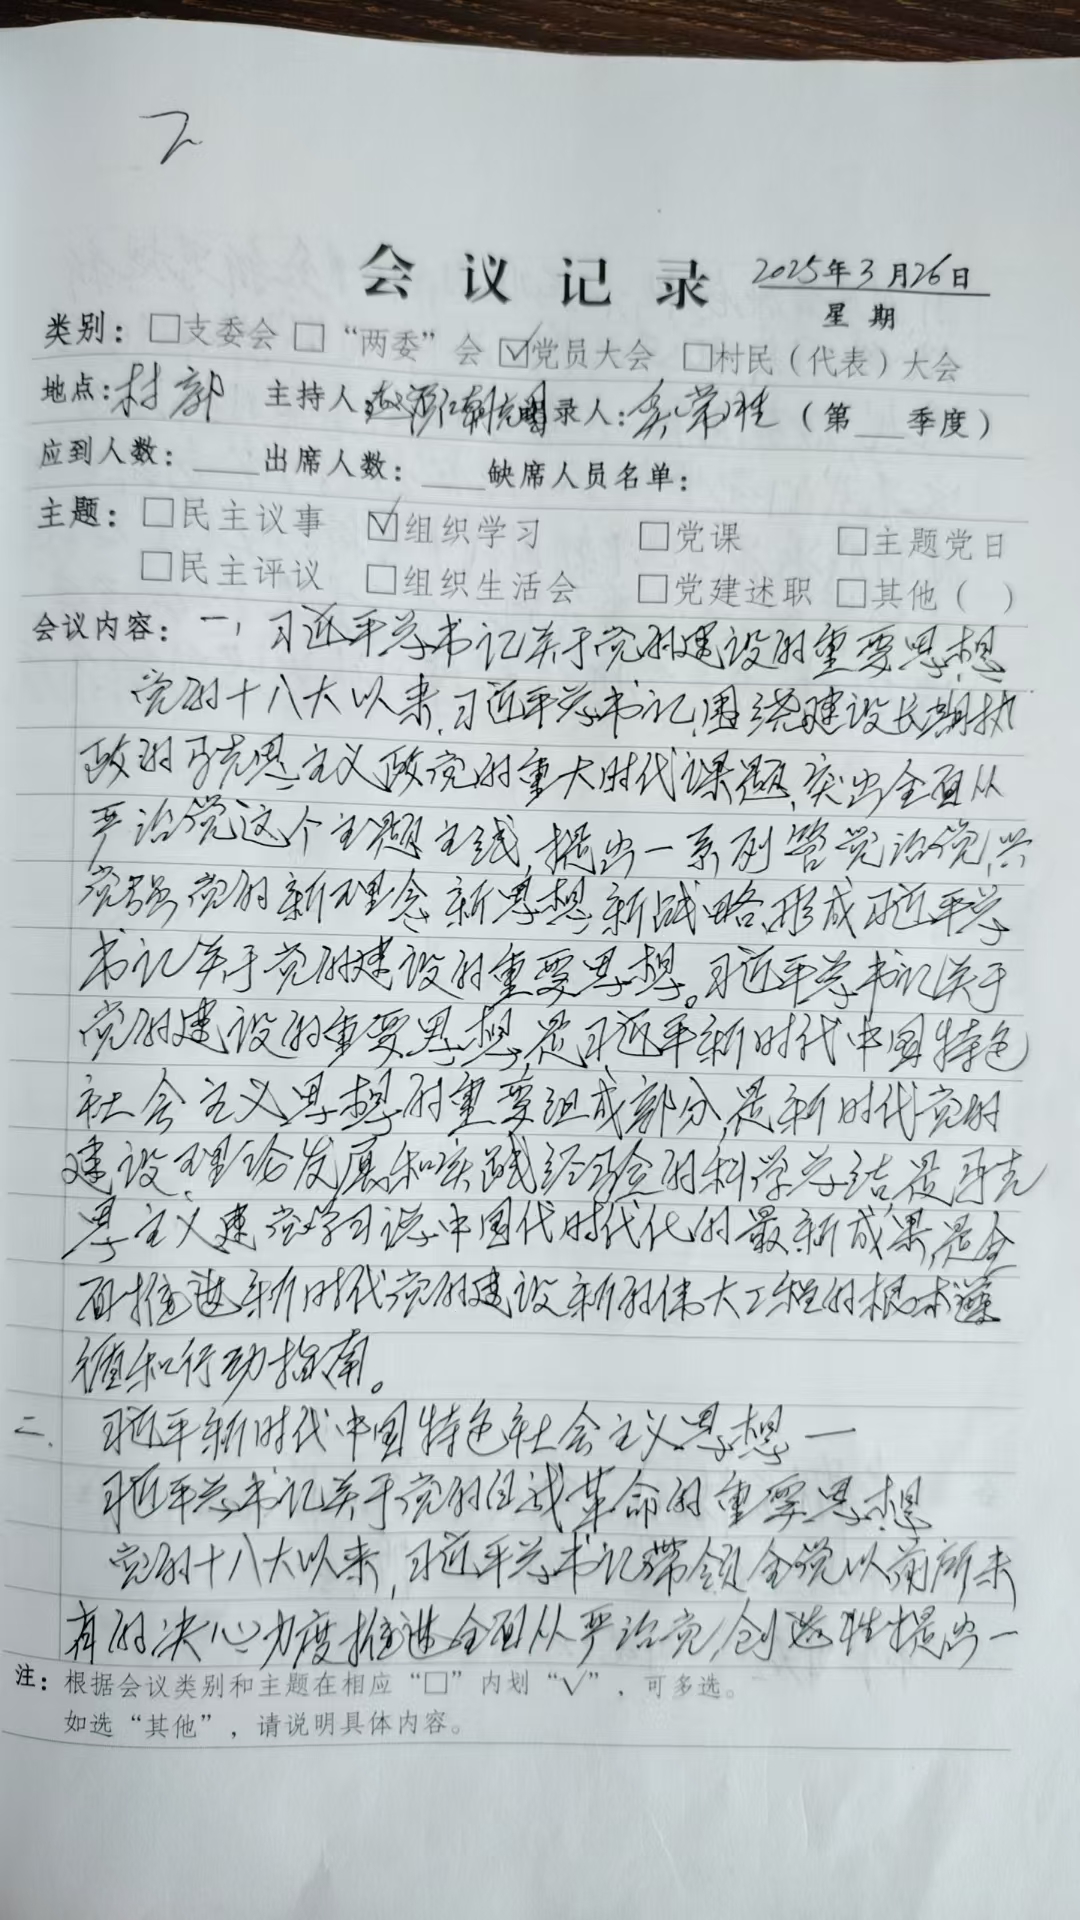 2
会议记录 2025年3月26日
星期
类别：□支委会 □“两委”会 ☑党员大会 □村民（代表）大会
地点：村部 主持人 录人： （第 季度）
应到人数： 出席人数： 缺席人员名单：
主题：□民主议事 ☑组织学习 □党课 □主题党日
□民主评议 □组织生活会 □党建述职 □其他（ ）
会议内容：一，习近平总书记关于党的建设的重要思想
党的十八大以来，习近平总书记，围绕建设长期执
政的马克思主义政党的重大时代课题，突出全面从
严治党这个主题主线，提出一系列管党治党，兴
党强党的新理念、新思想、新战略，形成习近平总
书记关于党的建设的重要思想。习近平总书记关于
党的建设的重要思想，是习近平新时代中国特色
社会主义思想的重要组成部分，是新时代党的
建设，理论发展和实践经验的科学总结，是马克
思主义建党学习说中国代时代化的最新成果，是全
面推进新时代党的建设新的伟大工程的根本遵
循和行动指南。
二、习近平新时代中国特色社会主义思想一
习近平总书记关于党的自我革命的重要思想
党的十八大以来，习近平总书记带领全党以前所未
有的决心力度推进全面从严治党，创造性提出一
注：根据会议类别和主题在相应“□”内划“√”，可多选。
如选“其他”，请说明具体内容。